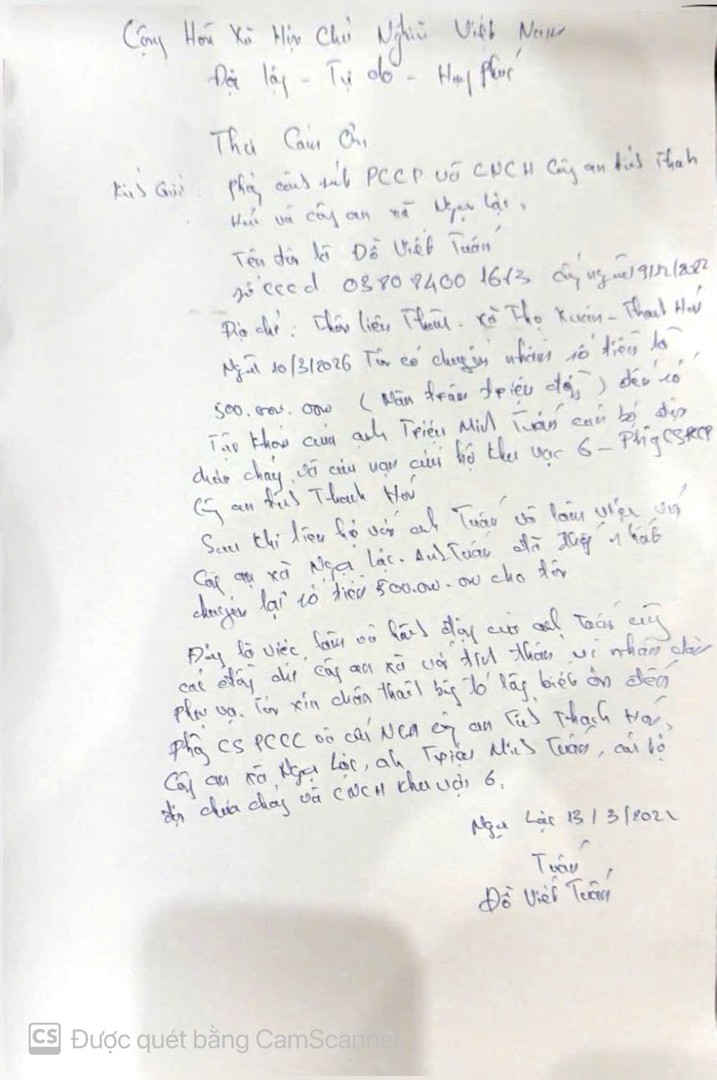 Cộng Hoà Xã Hội Chủ Nghĩa Việt Nam
Độc lập - Tự do - Hạnh phúc
Thư Cảm Ơn
Kính Gửi: phòng cảnh sát PCCP và CNCH Công an tỉnh Thanh
Hoá và công an xã Ngọc Lặc,
Tên tôi là Đỗ Viết Tuấn
số cccd 03808400 16 3 cấp ngày 19/12/2022
Địa chỉ: Thôn liên Thành - xã Thọ Xuân - Thanh Hoá
Ngày 10/3/2026 Tôi có chuyển nhầm số tiền là
500.000.000 (Năm trăm triệu đồng) đến số
Tài khoản của anh Triệu Minh Tuấn cán bộ đội
chữa cháy và cứu nạn cứu hộ khu vực 6 - Phòng CSPCCP
Công an tỉnh Thanh Hoá
Sau khi liên hệ với anh Tuấn và làm việc với
Công an xã Ngọc Lặc. Anh Tuấn đã nhất
chuyển lại số tiền 500.00.00 cho tôi
Đây là việc làm và hành động của anh Tuấn cùng
các đồng chí công an xã với tinh thần vì nhân dân
phục vụ. Tôi xin chân thành bày tỏ lòng biết ơn đến
phòng CS PCCC và công an Tỉnh Thanh Hoá,
Công an xã Ngọc Lặc, anh Triệu Minh Tuấn, cán bộ
đội chữa cháy và CNCH khu vực 6.
Ngọc Lặc 13/3/202
Tuấn
Đỗ Viết Tuấn
CS Được quét bằng CamScanner